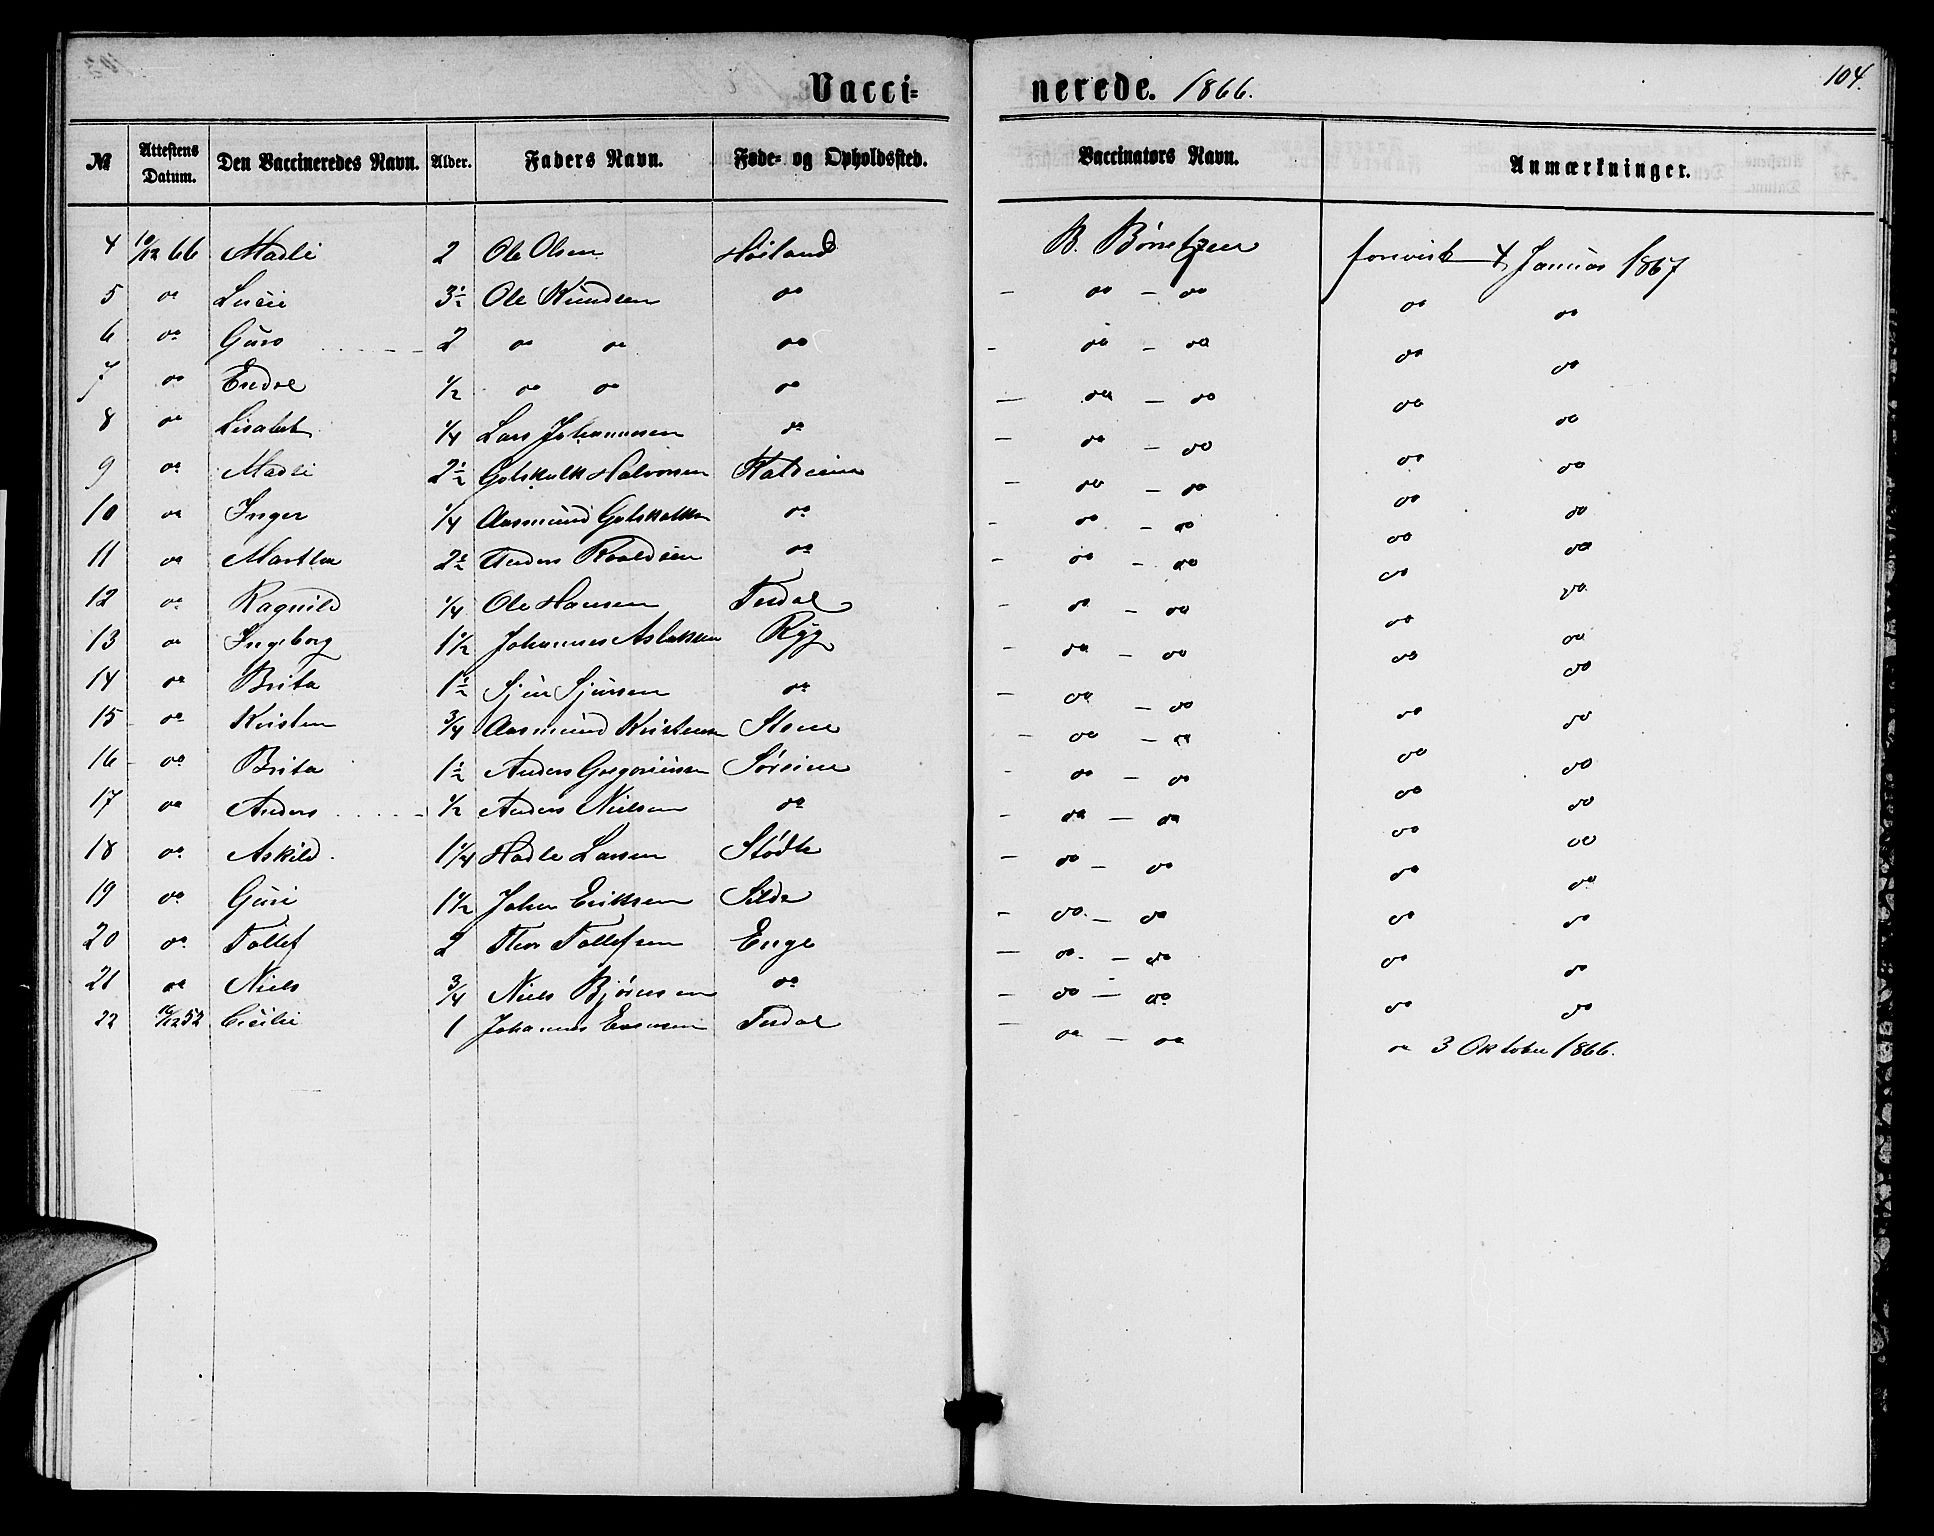 Vacci= nerede. 1866. 104.
№ Attestens Datum. Den Vaccineredes Navn. Alder. Faders Navn. Føde= og Opholdssted. Vaccinators Navn. Anmærkninger.
4 10/12 66 Madli 2 Ole Olsen Høiland B. Børretzen forevist 4 Januar 1867
5 do Lucie 3½ Ole Knudsen do — do — do do do
6 do Guro 2 do do do — do — do do do
7 do Endre ½ do do do — do — do do do
8 do Lisabet ¼ Lars Johannesen do — do — do do do
9 do Madli 2½ Gotskalk Halvorsen — do — do do do
10 do Inger ¼ Aasmund Gotskalksn do — do — do do do
11 do Martha 2½ Anders Roaldsen do — do — do do do
12 do Ragnild ¼ Ole Hansen — do — do do do
13 do Ingeborg 1½ Johannes Aslaksen Ryg — do — do do do
14 do Brita 1½ Sjur Sjursen do — do — do do do
15 do Kristen ¾ Aasmund Kristensn — do — do do do
16 do Brita 1½ Anders Gregoriussn — do — do do do
17 do Anders ½ Anders Nielsen do — do — do do do
18 do Askild 1¼ Hadle Larsen — do — do do do
19 do Guri 1½ John Eriksen — do — do do do
20 do Tollef 2 Thor Tollefsen Enge — do — do do do
21 do Niels ¾ Niels Bjørnsen do — do — do do do
22 /12 52 Cicilie 1 Johannes — do — do do 3 Oktober 1866.